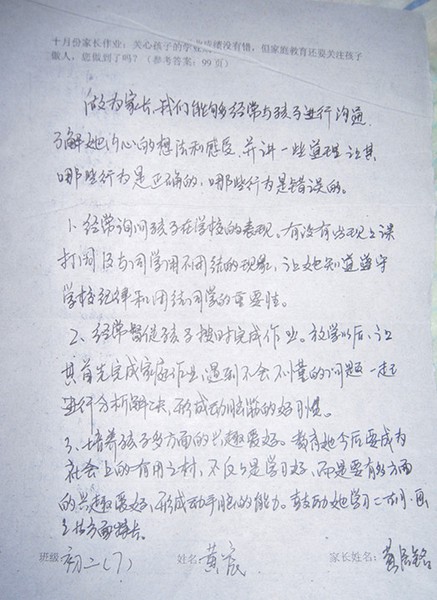 十月份家长作业：关心孩子的学业成绩没有错，但家庭教育还要关注孩子
做人，您做到了吗？（参考答案：99页）
做为家长，我们能够经常与孩子进行沟通，
了解她内心的想法和感受，并讲一些道理，让其
哪些行为是正确的，哪些行为是错误的。
1、经常询问孩子在学校的表现。有没有出现上课
打闹及与同学闹不团结的现象，让她知道遵守
学校纪律和团结同学的重要性。
2、经常督促孩子按时完成作业。放学以后，让
其首先完成家庭作业，遇到不会不懂的问题一起
进行分析解决，形成动脑筋的好习惯。
3、培养孩子多方面的兴趣爱好。教育她今后要成为
社会上的有用之材，不仅是学习好，而是要有多方面
的兴趣爱好，形成动手动脑的能力。鼓励她学习
方面特长。
班级 初二（7） 姓名：黄 家长姓名：黄